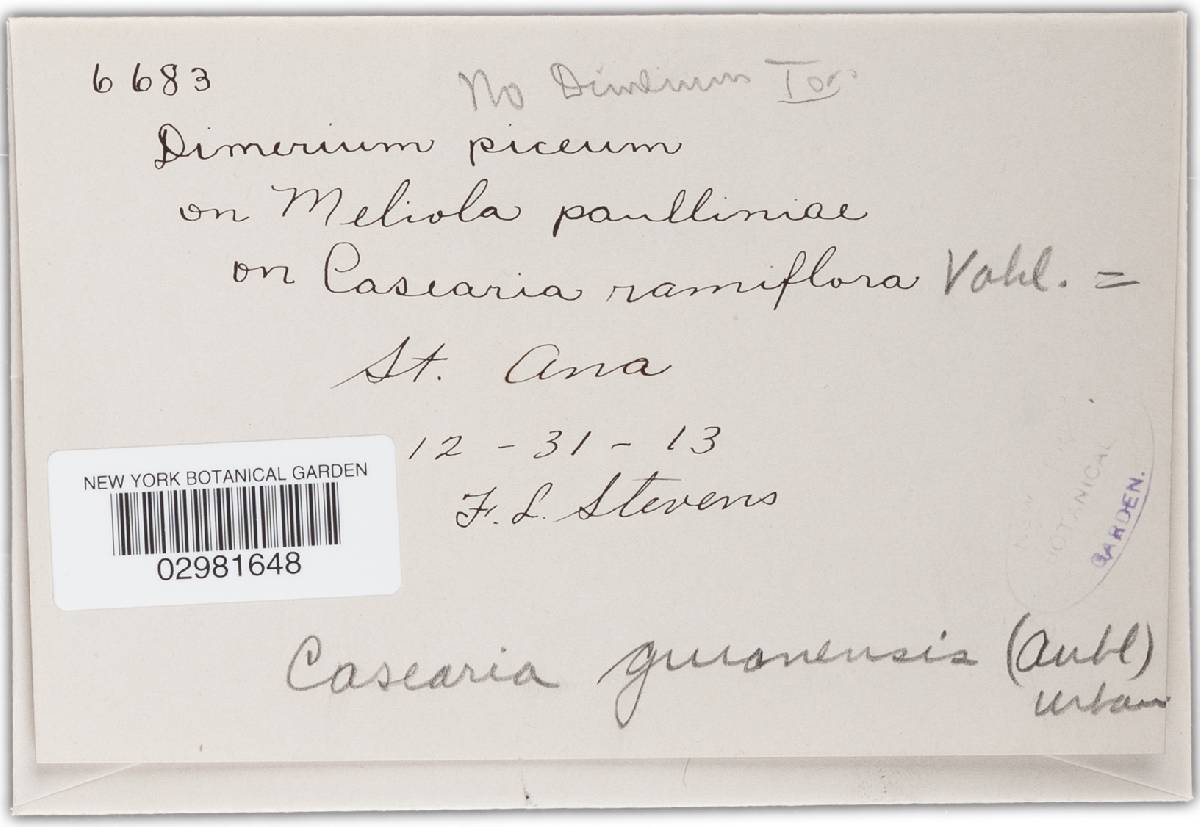 6683
No Dimerium
Dimerium piceum
on Meliola paulliniae
on Casearia ramiflora Vahl. =
St. Ana
12 - 31 - 13
F. L. Stevens
NEW YORK BOTANICAL GARDEN
02981648
BOTANICAL
GARDEN.
Casearia guianensis (Aubl)
Urban